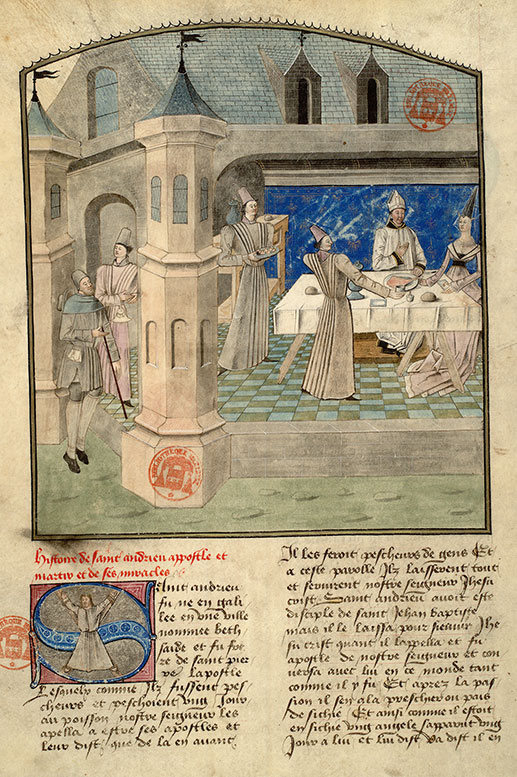 Histoire de saint andrieu appostle et
martir et de ses miracles
Saint andrieu
fu ne en gali
lee en une ville
nommee beth
saide et fu fre
re de saint pier
re lapostle
Lesquelz comme Ilz fussent pes
cheurs et peschoient ung Jour
au poisson nostre seigneur les
apella a estre ses apostles et
leur dist que de la en avant
Il les feroit pescheurs de gens Et
a ceste parolle Ilz laisserent tout
et servirent nostre seigneur Jhesu
crist Saint andrieu avoit este
disciple de saint Jehan baptiste
mais il le laissa pour servir Jhe
su crist quant il lappella et fu
apostle de nostre seigneur et con
versa avec lui en ce monde tant
comme il y fu Et aprez la pas
sion il sen ala preschier ou pais
de sichie Et ainsi comme il estoit
en sichie ung angele sapparut ung
Jour a lui et lui dist va dist il en
BIBLIOTHEQUE MAZARINE